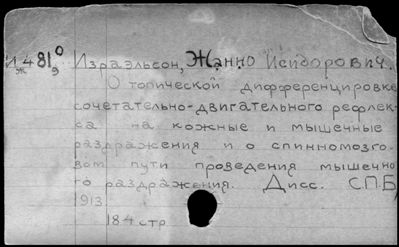 И481⁰ Израэльсон, Жанно Исидорович.
ж 9
О топической дифференцировке
сочетательно-двигательного рефлек-
са на кожные и мышечные
раздражения и о спинномозго-
вом пути проведения мышечно
го раздражения. Дисс. С.П.Б
1913
184 стр